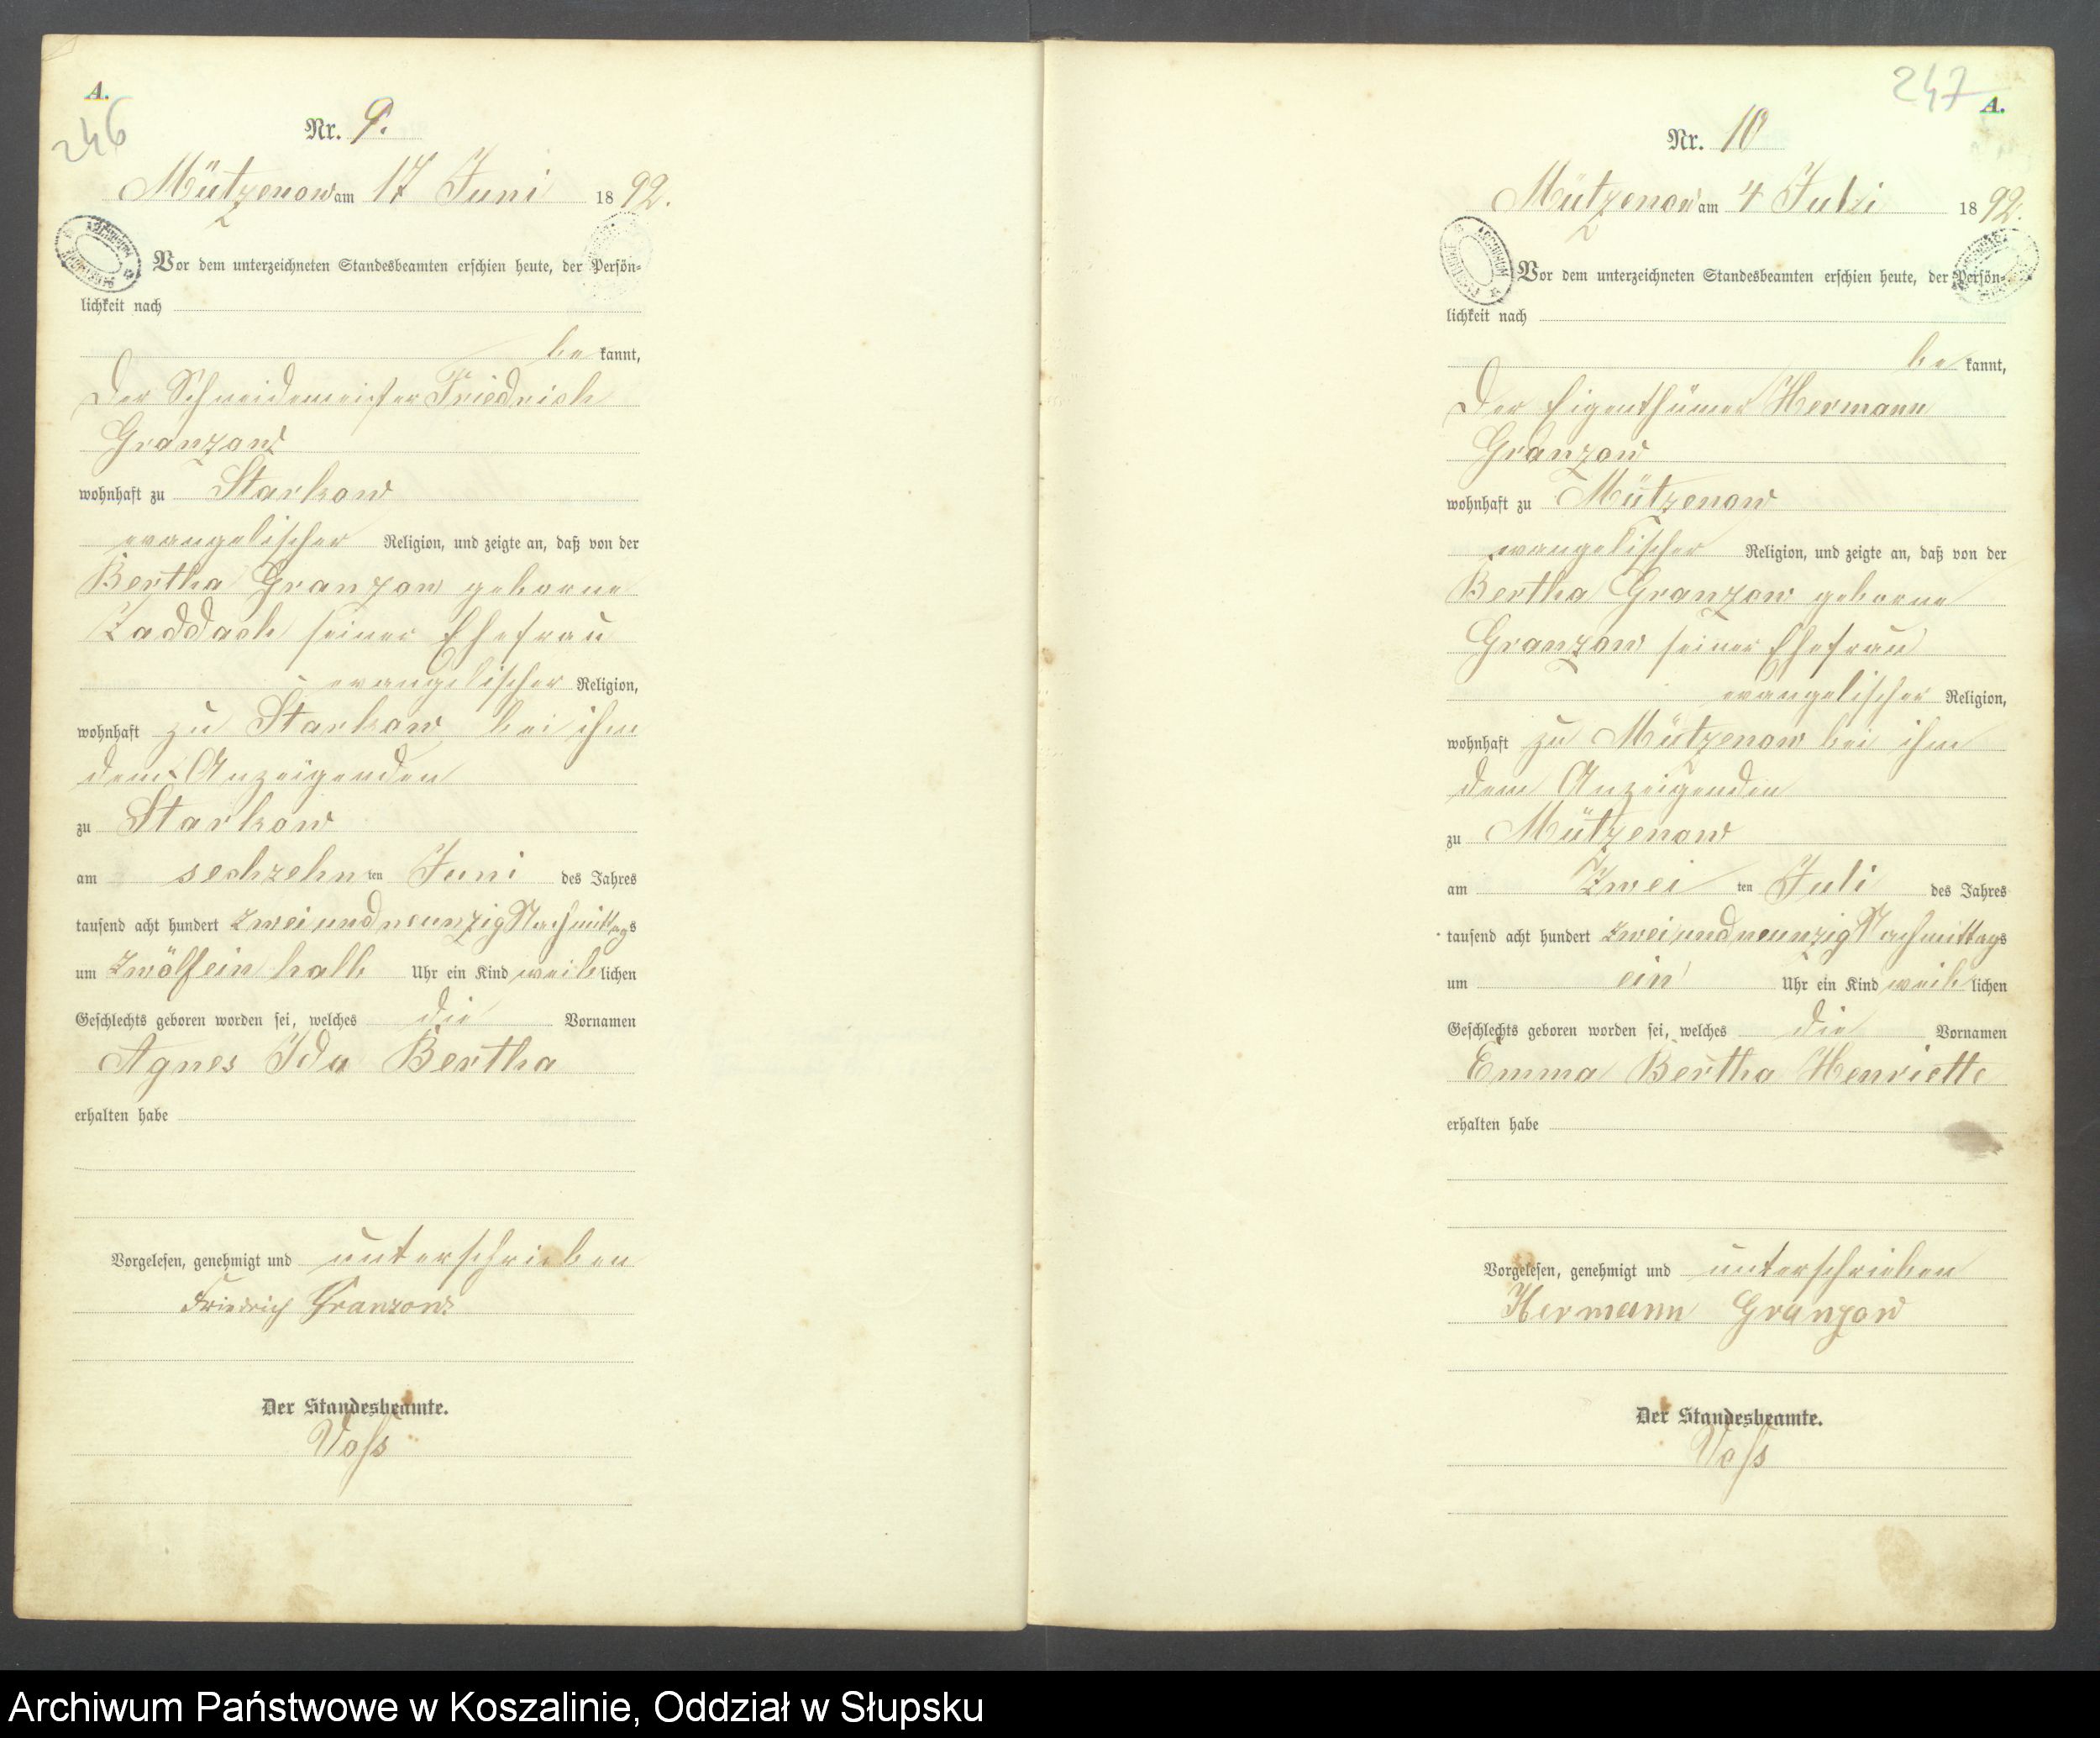 A.
246
Nr. 9.
Mützenow am 17 Juni 1892.
Vor dem unterzeichneten Standesbeamten erschien heute, der Persön-
lichkeit nach
be kannt,
der Schneidemeister Friedrich
Granzow
wohnhaft zu Starkow
evangelischer Religion, und zeigte an, daß von der
Bertha Granzow geborne
Zaddach seiner Ehefrau
evangelischer Religion,
wohnhaft zu Starkow bei ihm
dem Anzeigenden
zu Starkow
am sechzehn ten Juni des Jahres
tausend acht hundert zwei und neunzig Nachmittags
um zwölf ein halb Uhr ein Kind weib lichen
Geschlechts geboren worden sei, welches die Vornamen
Agnes Ida Bertha
erhalten habe
Vorgelesen, genehmigt und unterschrieben
Friedrich Granzow
Der Standesbeamte.
Voss
247
A.
Nr. 10
Mützenow am 4 Juli 1892.
Vor dem unterzeichneten Standesbeamten erschien heute, der Persön-
lichkeit nach
be kannt,
der Eigenthümer Hermann
Granzow
wohnhaft zu Mützenow
evangelischer Religion, und zeigte an, daß von der
Bertha Granzow geborne
Granzow seiner Ehefrau
evangelischer Religion,
wohnhaft zu Mützenow bei ihm
dem Anzeigenden
zu Mützenow
am Zwei ten Juli des Jahres
tausend acht hundert zwei und neunzig Nachmittags
um ein Uhr ein Kind weib lichen
Geschlechts geboren worden sei, welches die Vornamen
Emma Bertha Henriette
erhalten habe
Vorgelesen, genehmigt und unterschrieben
Hermann Granzow
Der Standesbeamte.
Voss
Archiwum Państwowe w Koszalinie, Oddział w Słupsku